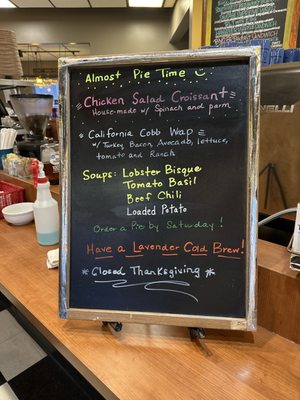 Almost Pie Time
Chicken Salad Croissant
House-made w/ Spinach and parm
California Cobb Wrap
w/ Turkey, Bacon, Avocado, lettuce,
tomato and Ranch
Soups: Lobster Bisque
Tomato Basil
Beef Chili
Loaded Potato
Order a Pie by Saturday!
Have a Lavender Cold Brew!
*Closed Thanksgiving*